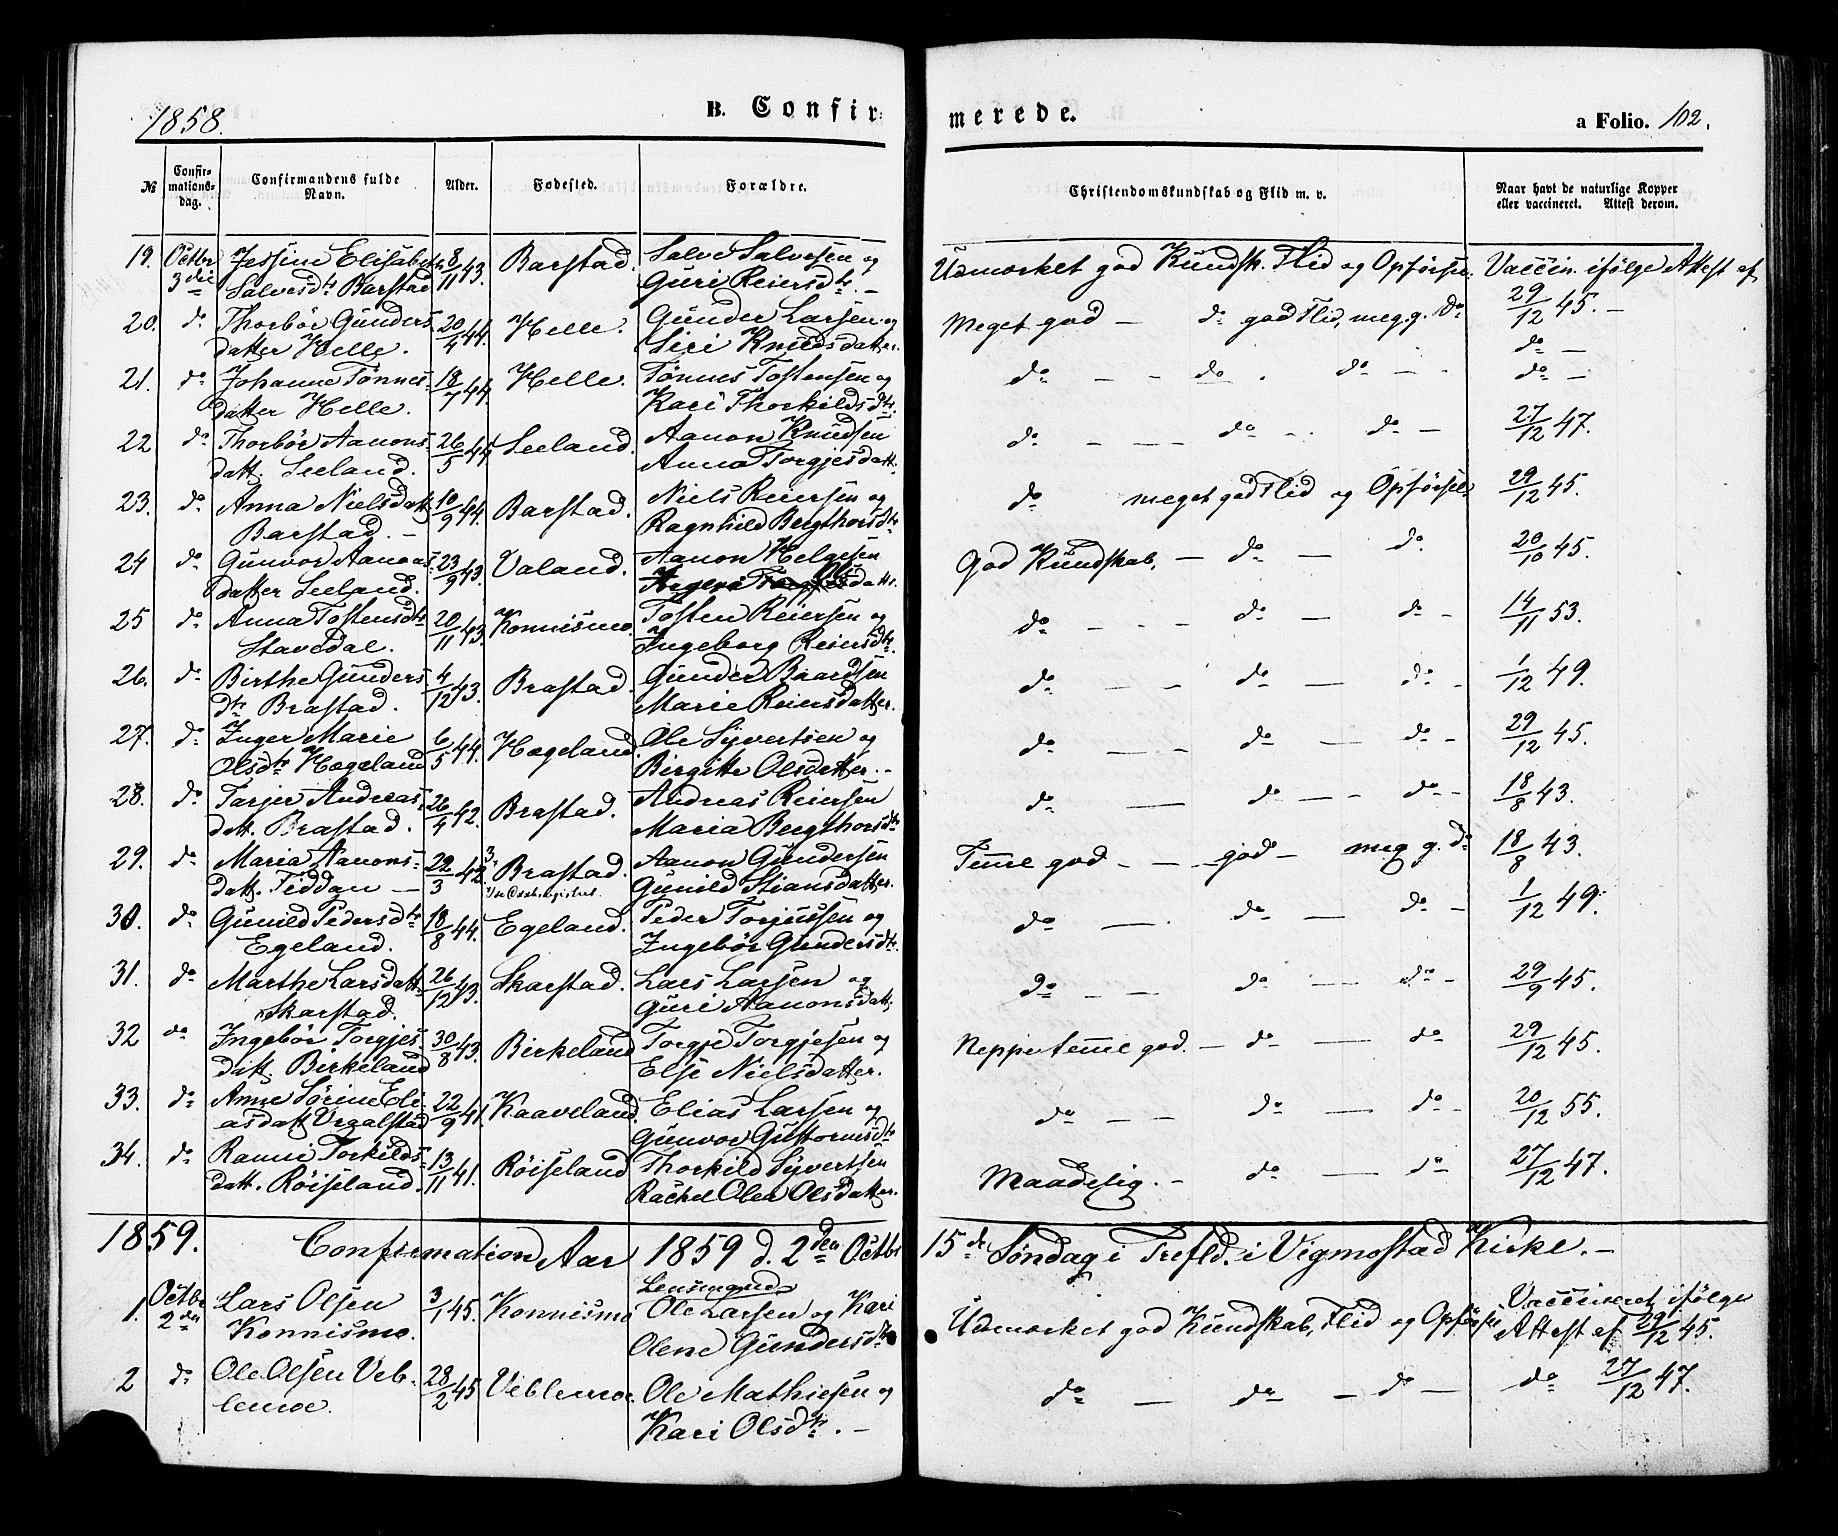 1858.
B. Confir-
merede.
a Folio. 102.
No
Confir-
mations-
dag.
Confirmandens fulde
Navn.
Alder.
Fødested.
Forældre.
Christendomskundskab og Flid m. v.
Naar havt de naturlige Kopper
eller vaccineret. Attest derom.
19. Octbr Jessine Elisabeth 8/11 43. Barstad. Salve Salvesen og Udmærket god Kundsk. Flid og Opførsel. Vaccin. ifølge Attest af
3die Salvesdtr Barstad Guri Reiersdtr. – 29/12 45. –
20. do Thorbör Gunders 20/4 44. Helle. Gunder Larsen og Meget god – do god Flid, meg. g. do
datter Helle. Siri Knudsdatter. do –
21. do Johanne Tönnes- 18/7 44. Helle. Tönnes Tostensen og do – – do . do – do –
datter Helle. Kari Thorkildsdtr.
22 do Thorbör Aanons- 26/5 44. Seeland. Aanon Knudsen do – – – do – do – 27/12 47.
datt. Seeland. Anna Torgjesdatt.
23. do Anna Nielsdatt. 10/9 44. Barstad. Niels Reiersen og do meget god Flid og Opførsel 29/12 45.
Barstad. – Ragnhild Bergthorsdtr
24 do Gunvor Aanons- 23/9 43. Valand. Aanon Helgesen God Kundskab. – do – do 20/10 45.
datter Seeland. datter.
25 do Anna Tostensdtr 20/11 43. Konnismo. Tosten Reiersen og do – – – do – do – 14/11 53.
Stavedal. Ingeborg Reiersdtr.
26. do Birthe Gunders 4/12 43. Brastad. Gunder Baardsen do – – do – do – 1/12 49.
dtr Brastad. Marie Reiersdatter.
27. do Inger Marie 6/5 44. Hægeland. Ole Syvertsen og do – – do – do – 29/12 45.
Olsdtr Hægeland Birgitte Olsdatter. –
28. do Tarjer Andreas- 26/4 42. Brastad. Andreas Reiersen do – – do – – do – 18/8 43.
datt. Brastad. Maria Bergthorsdtr
29. do Maria Aanons- 22/3 42. Brastad. Aanon Gundersen Temel god – – god – meg g. do 18/8 43.
datt. Fiddan – Gunild Stiansdatter.
30. do Gunild Pedersdtr 18/8 44. Egeland. Peder Torjussen og do – – do – do – 1/12 49.
Egeland. Ingebör Gundersdtr.
31. do Marthe Larsdatt. 26/12 43. Skarstad. Lars Larsen og do – – do – do – 29/9 45.
Skarstad. Guri Aanonsdatt.
32 do Ingebör Torgjes- 30/8 43. Birkeland Torgje Torgjesen og Neppe temel god. – do – do 29/12 45.
datt. Birkeland Else Nielsdatter.
33. do Anne Sörine Eli- 22/9 41. Kaaveland. Elias Larsen og do – – do – do – 20/12 55.
asdatt. Gunvor Guttormsdtr
34. do Ranni Torkilds- 13/11 41. Röiseland Thorkild Syvertsen Maadelig. – do – do 27/12 47.
datt. Röiseland. Rachel Olene Olsdatter.
1859. Confirmation Aar 1859 d. 2den Octbr 15de Söndag i Trefld. i Vigmostad Kirke. –
Lensmand
1. Octbr Lars Olsen 3/1 45. Konnismo Ole Larsen og Kari Udmærket god Kundskab, Flid og Opførsel Vaccineret ifølge
2den Konnismo. Olene Gundersdtr Attest af 29/12 45.
2 do Ole Olsen Veb- 28/2 45 Veblemoe. Ole Mathiesen og do – do – do – do 27/12 47.
lemoe. Kari Olsdtr. –